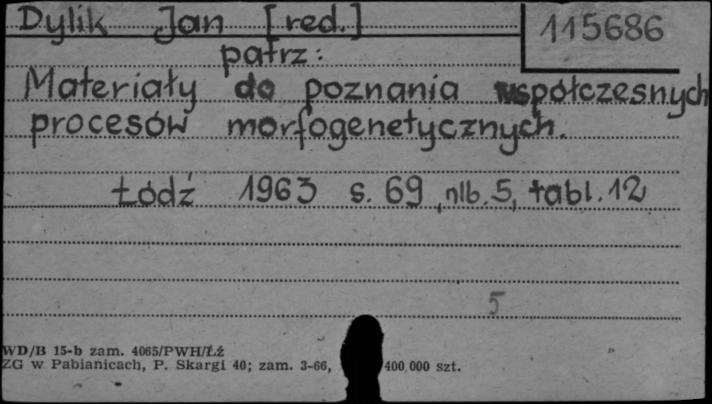 Dylik Jan [red.] 115686
patrz:
Materiały do poznania współczesnych
procesów morfogenetycznych.
Łódź 1963 s. 69, nlb. 5, tabl. 12
5
WD/B 15-b zam. 4065/PWH/Łź
ZG w Pabianicach, P. Skargi 40; zam. 3-66, 400 000 szt.